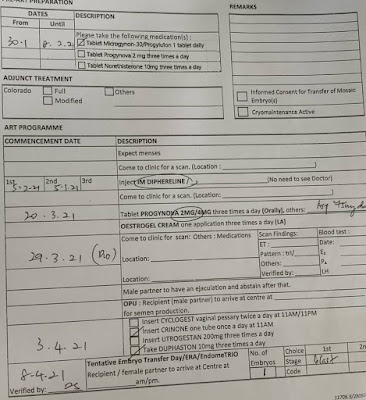 PRE-ART PREPARATION
DATES
DESCRIPTION
REMARKS
From
Until
Please take the following medication(s):
30.1
8.2.21
Tablet Microgynon-30/Progyluton 1 tablet daily
Tablet Progynova 2 mg three times a day
Tablet Norethisterone 10mg three times a day
ADJUNCT TREATMENT
Colorado
Full
Others
Modified
Informed Consent for Transfer of Mosaic Embryo(s)
Cryomaintenance Active
ART PROGRAMME
COMMENCEMENT DATE
DESCRIPTION
Expect menses
Come to clinic for a scan. (Location :
1st
2nd
3rd
Inject IM DIPHERELINE
(No need to see Doctor)
Come to clinic for a scan. (Location :
20.3.21
Tablet PROGYNOVA 2MG/4MG three times a day (Orally), others:
OESTROGEL CREAM one application three times a day (LA)
29.3.21
Come to clinic for scan: Others : Medications
Scan Findings:
Blood test :
ET :
Date:
Location:
Pattern : tri/
E₂
Others:
P₄
Location:
Verified by:
LH
Male partner to have an ejaculation and abstain after that.
OPU : Recipient (male partner) to arrive at centre at
for semen production.
Insert CYCLOGEST vaginal pessary twice a day at 11AM/11PM
Insert CRINONE one tube once a day at 11AM
3.4.21
Insert UTROGESTAN 200mg three times a day
Take DUPHASTON 10mg three times a day
8-4.21
Tentative Embryo Transfer Day/ERA/EndomeTRIO
No. of Embryos
Choice
1st
2nd
Recipient / female partner to arrive at Centre at
Stage
blast
am/pm.
1
Code
Verified by: